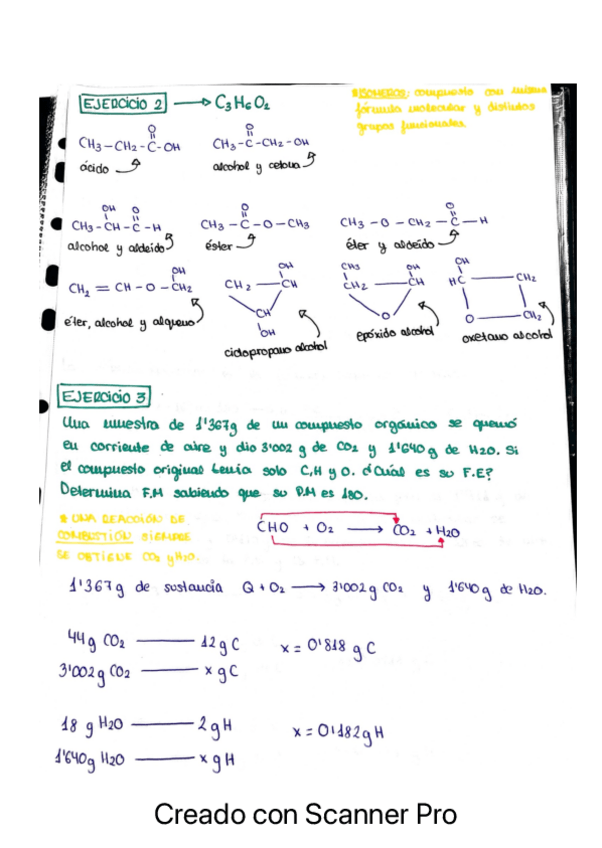 EJERCICIO 2 → C3H6O2
ISÓMEROS: compuesto con misma
fórmula molecular y distintos
grupos funcionales.
O
CH3-CH2-C-OH
ácido
O
CH3-C-CH2-OH
alcohol y cetona
OH O
CH3-CH-C-H
alcohol y aldeído
O
CH3-C-O-CH3
éster
O
CH3-O-CH2-C-H
éter y aldeído
OH
CH2=CH-O-CH2
éter, alcohol y alqueno
OH
CH2-CH
CH
OH
ciclopropano alcohol
CH3 OH
CH2 CH
O
epóxido alcohol
OH
HC CH2
O CH2
oxetano alcohol
EJERCICIO 3
Una muestra de 1'367g de un compuesto orgánico se quemó
en corriente de aire y dio 3'002 g de CO2 y 1'640g de H2O. Si
el compuesto original tenía solo C,H y O. ¿Cuál es su F.E?
Determina F.M sabiendo que su P.M es 180.
* UNA REACCIÓN DE
COMBUSTIÓN SIEMPRE
SE OBTIENE CO2 y H2O.
CHO + O2 → CO2 + H2O
1'367g de sustancia Q + O2 → 3'002g CO2 y 1'640g de H2O.
44g CO2 — 12g C x = 0'818 g C
3'002g CO2 — x g C
18 g H2O — 2 g H x = 0'182g H
1'640g H2O — x g H
Creado con Scanner Pro